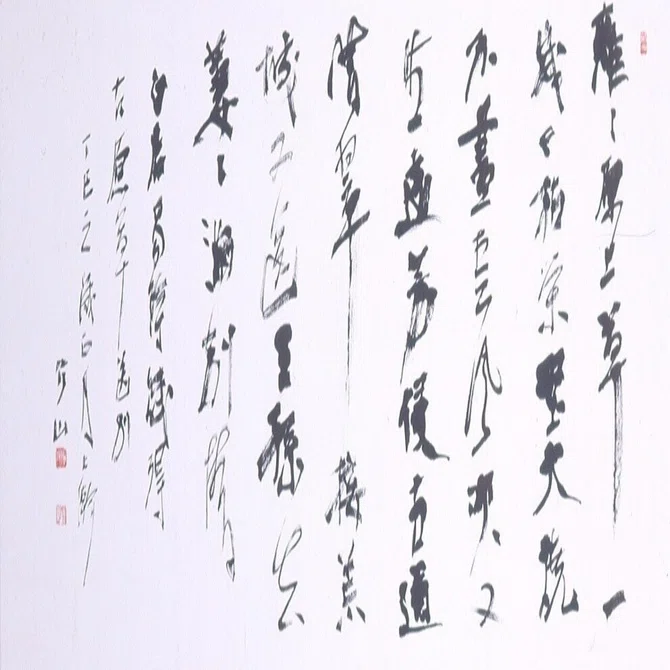 離々原上草一
歲々枯榮野火燒
不盡春風吹又
生遠芳侵古道
晴翠接荒
城又送王孫去
萋々滿別情
白居易詩賦得
古原草送別
丁巳之歲正月上
山